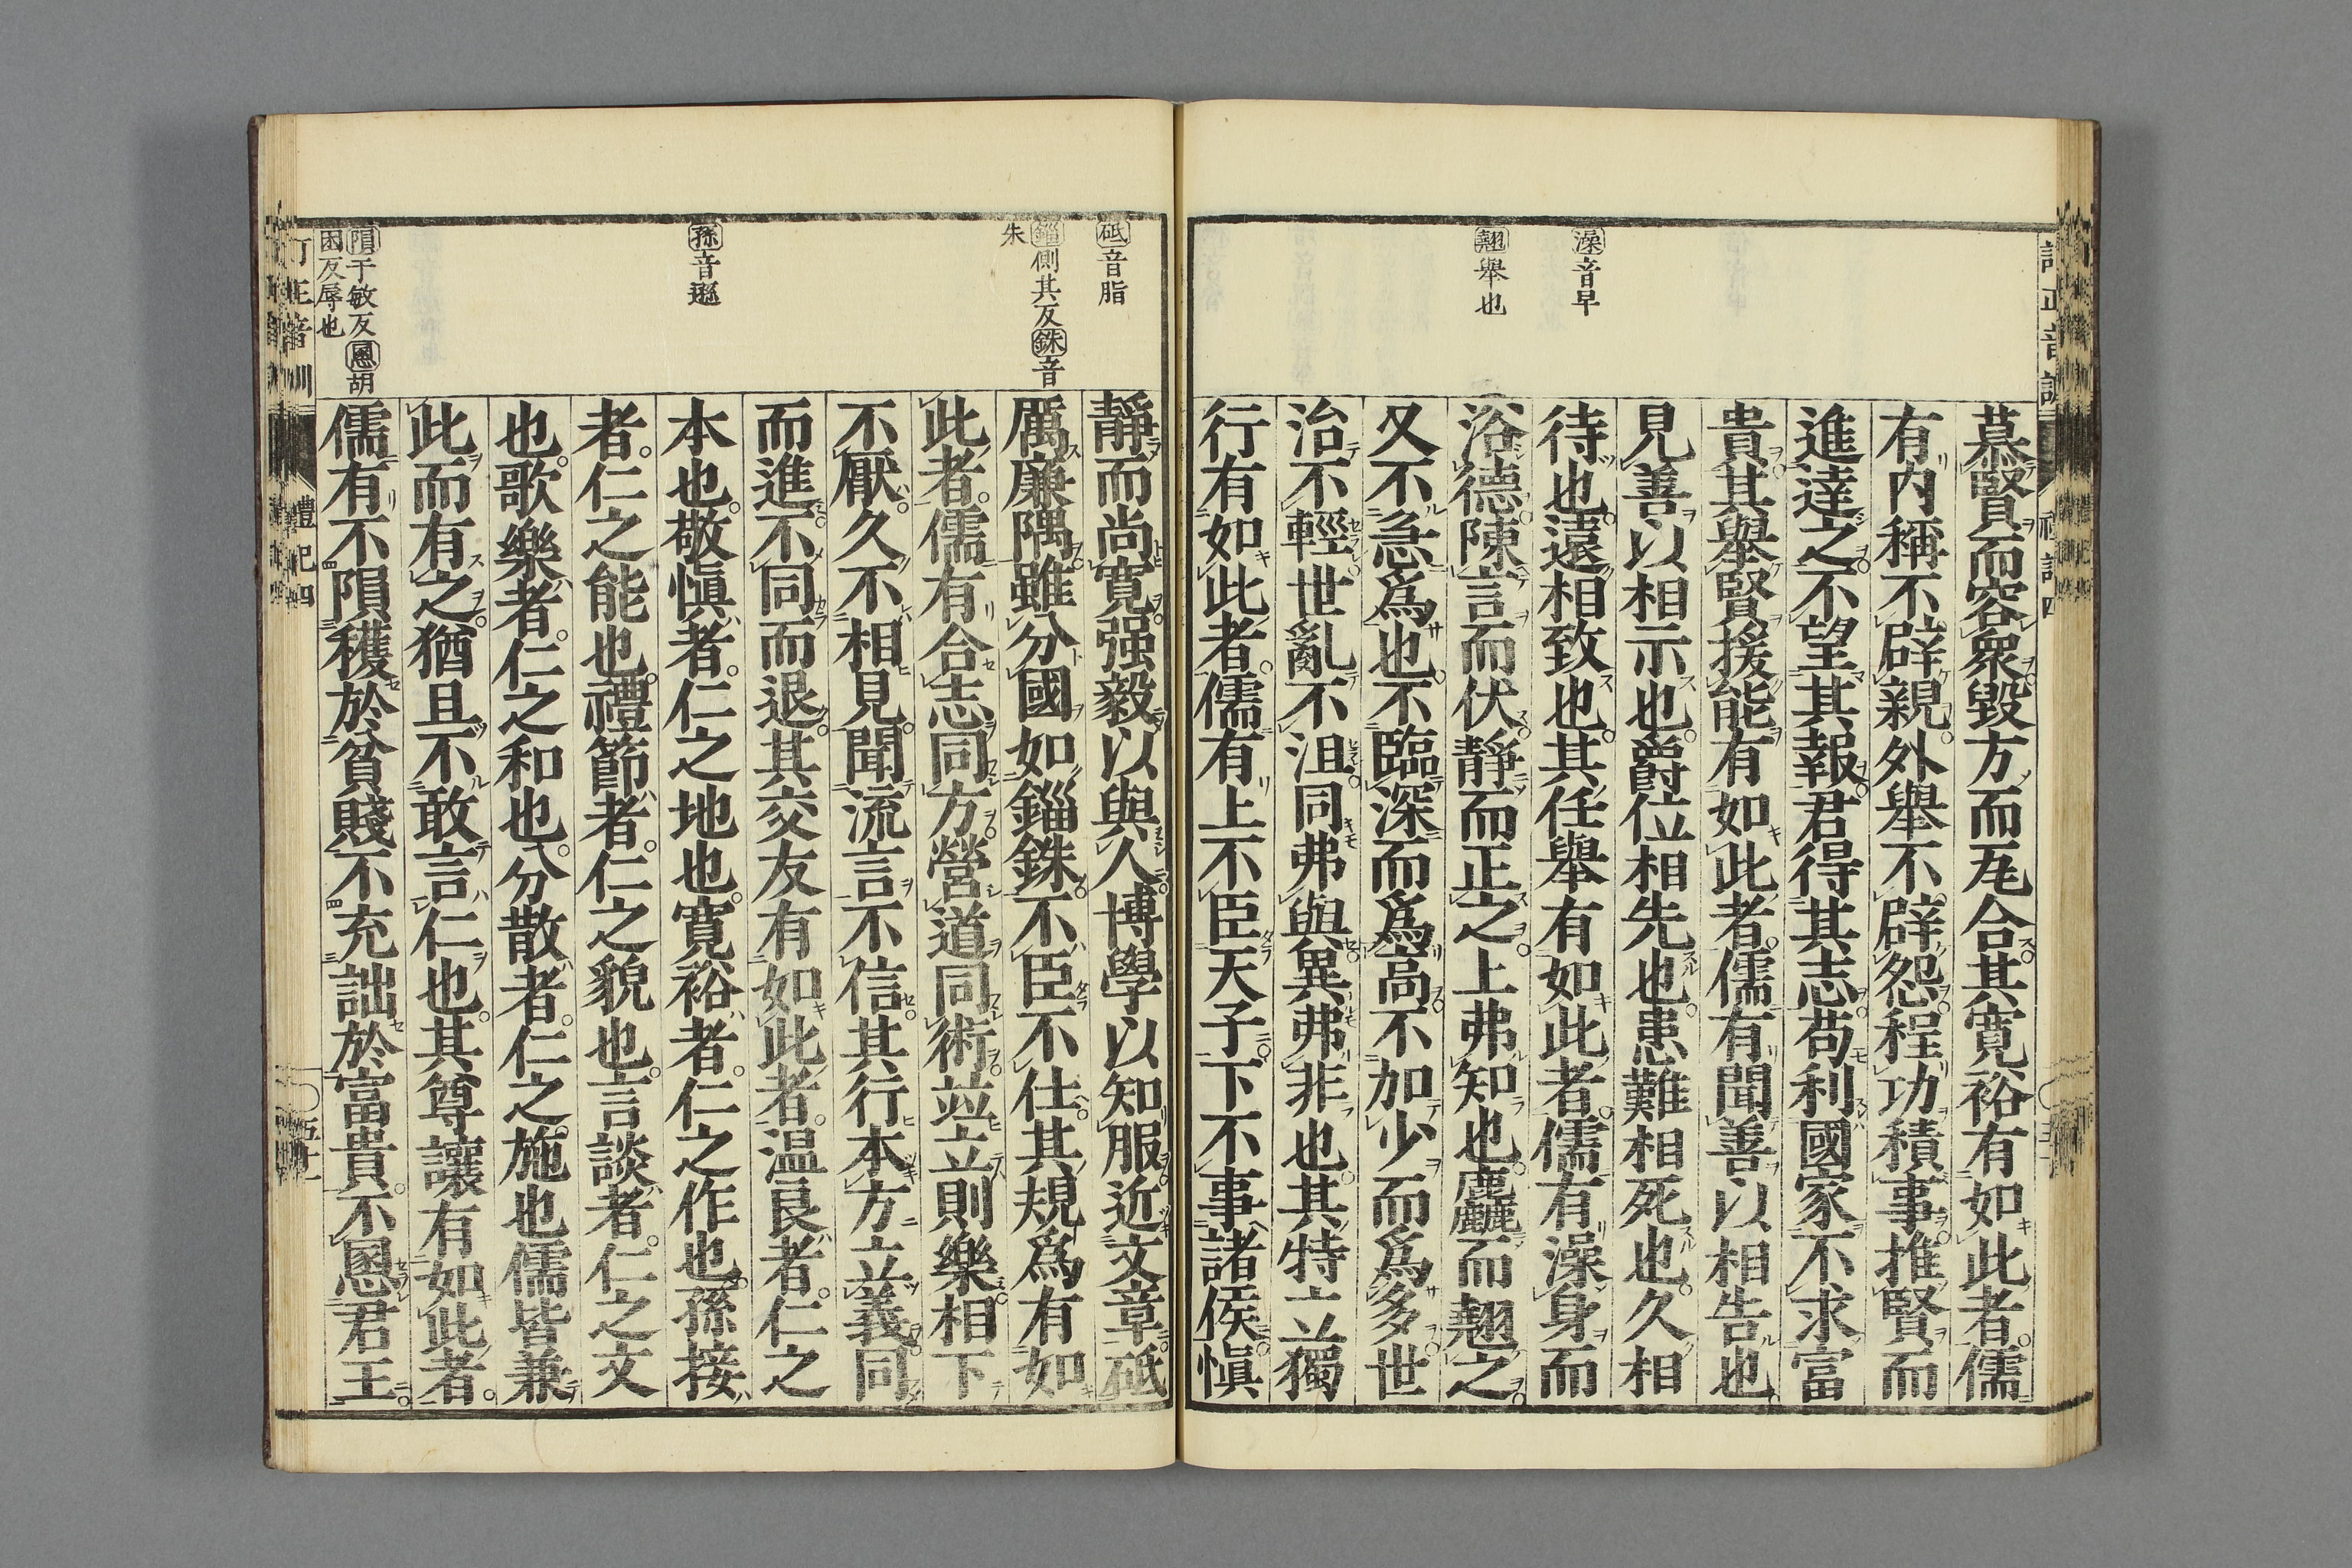 澡音早
翹舉也
慕賢而容衆毀方而瓦合其寬裕有如此者儒
有内稱不辟親外舉不辟怨程功積事推賢而
進達之不望其報君得其志苟利國家不求富
貴其舉賢援能有如此者儒有聞善以相告也
見善以相示也爵位相先也患難相死也久相
待也遠相致也其任舉有如此者儒有澡身而
浴德陳言而伏靜而正之上弗知也麤而翹之
又不急爲也不臨深而爲高不加少而爲多世
治不輕世亂不沮同弗與異弗非也其特立獨
行有如此者儒有上不臣天子下不事諸侯愼
砥音脂
錙側其反銖音
朱
孫音遜
隕于敏反慁胡
困反辱也
靜而尚寬强毅以與人博學以知服近文章砥
厲廉隅雖分國如錙銖不臣不仕其規爲有如
此者儒有合志同方營道同術竝立則樂相下
不厭久不相見聞流言不信其行本方立義同
而進不同而退其交友有如此者温良者仁之
本也敬愼者仁之地也寬裕者仁之作也孫接
者仁之能也禮節者仁之貌也言談者仁之文
也歌樂者仁之和也分散者仁之施也儒皆兼
此而有之猶且不敢言仁也其尊讓有如此者
儒有不隕穫於貧賤不充詘於富貴不慁君王
禮記四